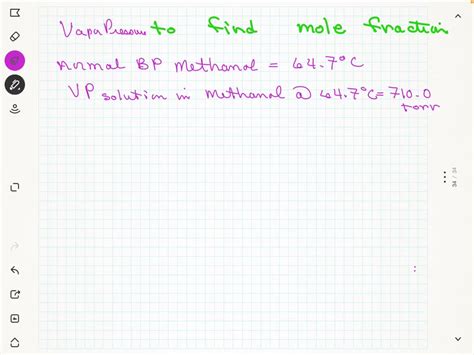 Vapa Pressure to find mole fraction
Normal BP Methanol = 64.7°C
VP solution in Methanol @ 64.7°C = 710.0
torr
34 / 34